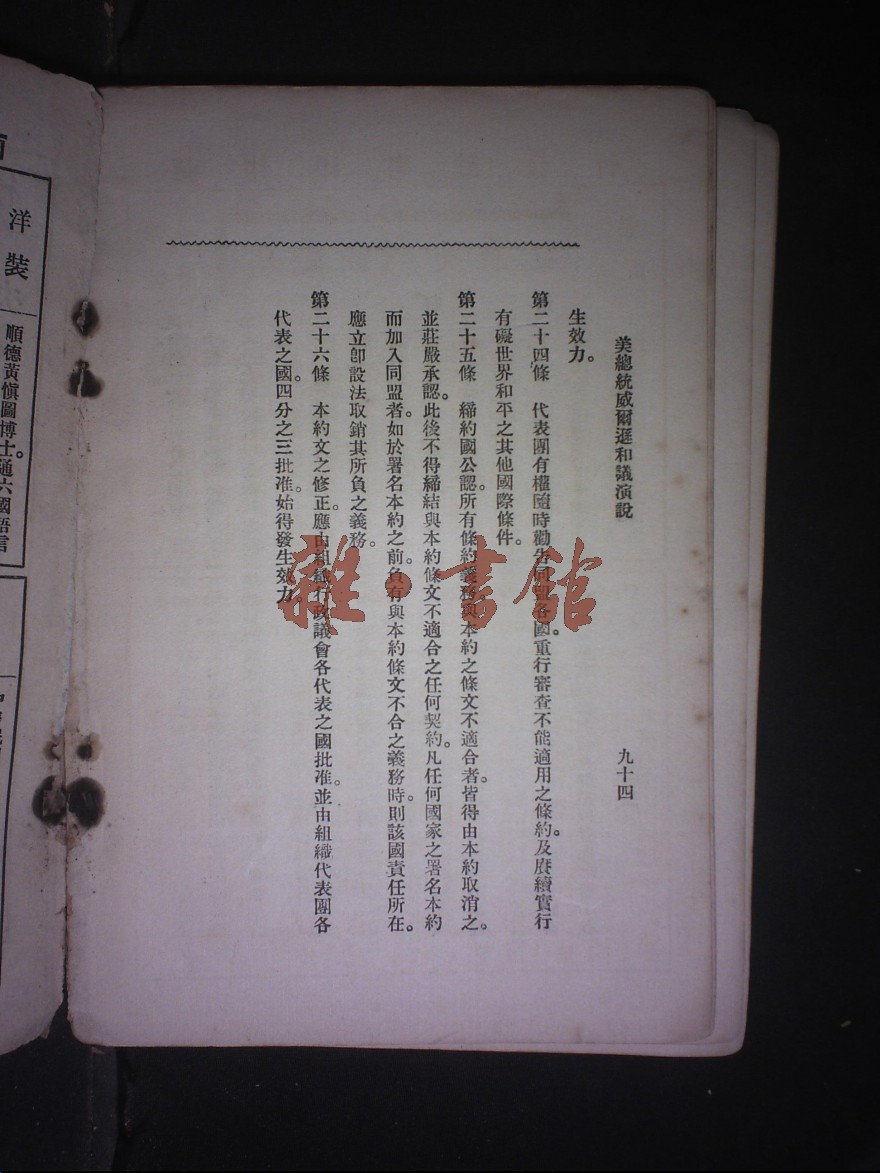 美總統威爾遜和議演說
九十四
生效力。
第二十四條　代表團有權隨時勸告同盟各國。重行審查不能適用之條約。及賡續實行
有礙世界和平之其他國際條件。
第二十五條　締約國公認。所有條約義務。與本約之條文不適合者。皆得由本約取消之。
並莊嚴承認。此後不得締結與本約條文不適合之任何契約。凡任何國家之署名本約
而加入同盟者。如於署名本約之前。負有與本約條文不合之義務時。則該國責任所在。
應立卽設法取銷其所負之義務。
第二十六條　本約文之修正。應由組織行政議會各代表之國批准。並由組織代表團各
代表之國。四分之三批准。始得發生效力。
雜·書館
洋裝
順德黃愼圖博士。通六國語言